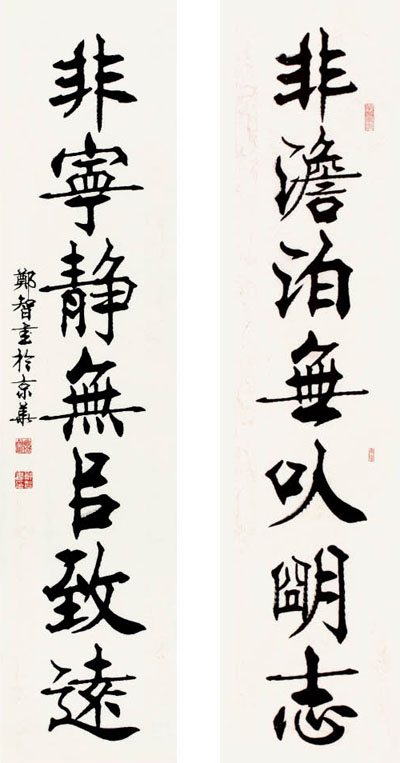 非澹泊無以朙志
非寧静無㠯致遠
鄭智書於京華